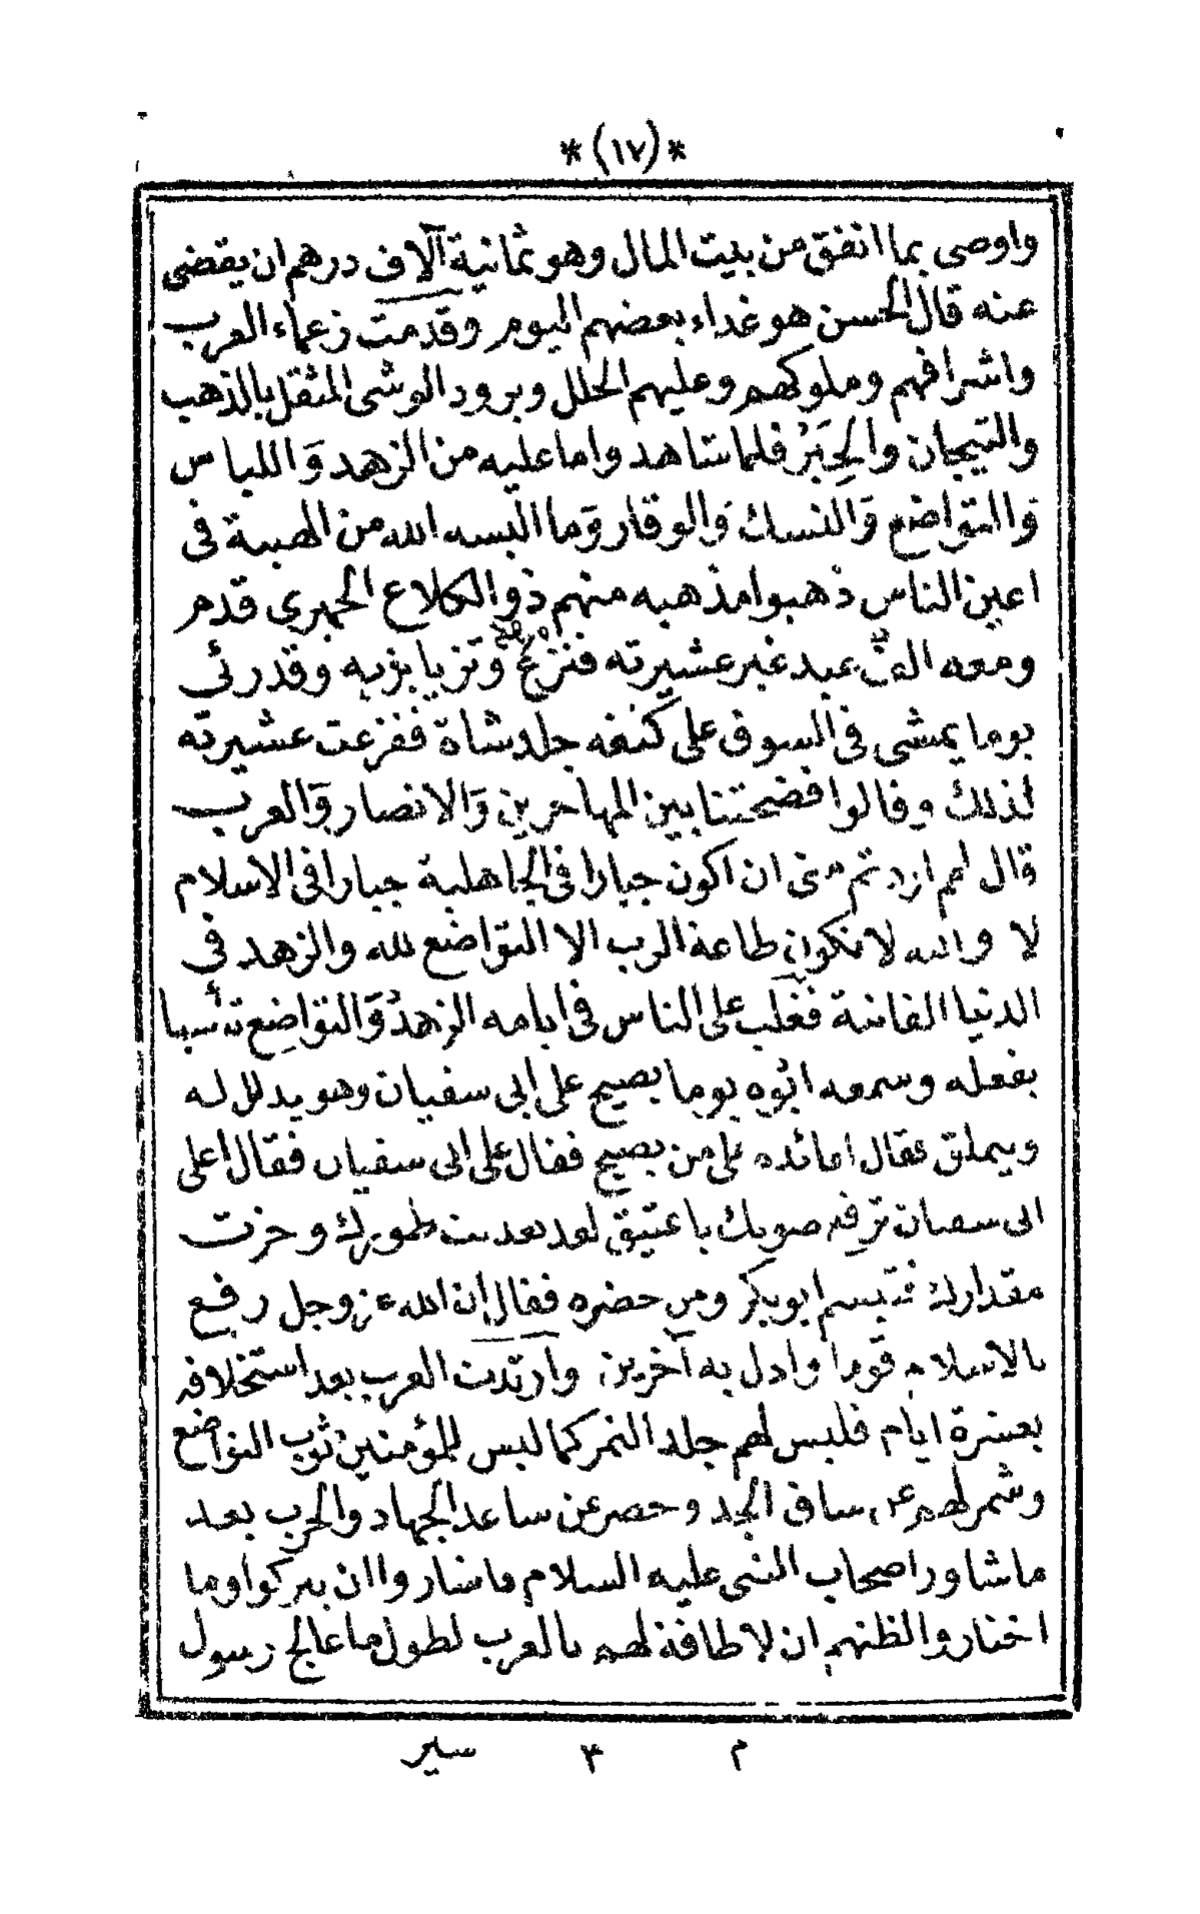 *(١٧)*
واوصى بما انفق من بيت المال وهو ثمانية آلاف درهم ان يقضى
عنه قال الحسن هو غداء بعضهم اليوم وقدمت زعماء العرب
واشرافهم وملوكهم وعليهم الحلل وبرود الوشى المثقل بالذهب
والتيجان والحِبَرُ فلما شاهدوا ما عليه من الزهد وَاللباس
وَالتواضع وَالنسك وَالوقار وَما البسه الله من الهيبة فى
اعين الناس ذهبوا مذهبه منهم ذو الكلاع الحميرى قدم
ومعه الف عبد غير عشيرته فنزع وَتزيا بزيه وقد رئى
يوما يمشى فى السوق على كتفه جلد شاة ففزعت عشيرته
لذلك وقالوا فضحتنا بين المهاجرين وَالانصار وَالعرب
قال لهم اردتم منى ان اكون جبارا فى الجاهلية جبارا فى الاسلام
لا والله لا تكون طاعة الرب الا التواضع لله والزهد فى
الدنيا الفانية فغلب على الناس فى ايامه الزهدُ وَالتواضِع تأسيا
بفعله وسمعه ابوه يوما يصيح على ابى سفيان وهو يدلل له
ويملق فقال لقائده على من يصيح فقال على ابى سفيان فقال اعلى
ابى سفيان ترفع صوتك يا عتيق لقد تعديت طورك وحزت
مقدارك فتبسم ابو بكر ومن حضره فقال إن الله عز وجل رفع
بالاسلام قوما وادل به آخرين وارتدت العرب بعد استخلافه
بعشرة ايام فلبس لهم جلد النمر كما لبس للمؤمنين ثوب التواضع
وشمر لهم عن ساق الجد وحصر عن ساعد الجهاد والحرب بعد
ما شاور اصحاب النبى عليه السلام فاشاروا ان يتركوا وما
اختاروا لظنهم ان لا طاقة لهم بالعرب لطول ما عالج رسول
م ٣ سير